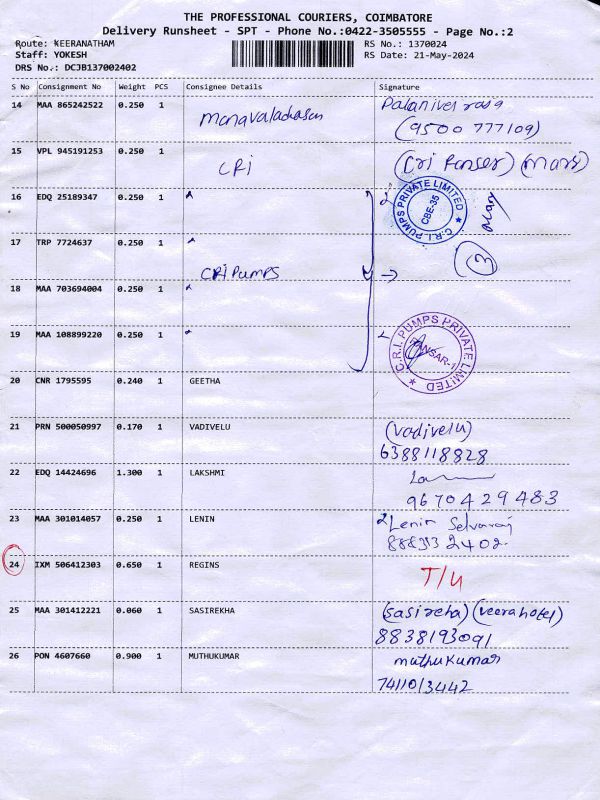 THE PROFESSIONAL COURIERS, COIMBATORE
Delivery Runsheet - SPT - Phone No.:0422-3505555 - Page No.:2
Route: KEERANATHAM
RS No.: 1370024
Staff: YOKESH
RS Date: 21-May-2024
DRS No.: DCJB137002402
S No Consignment No Weight PCS Consignee Details Signature
14 MAA 865242522 0.250 1 Palanivel raja
(9500777109)
15 VPL 945191253 0.250 1 CRI
16 EDQ 25189347 0.250 1
C.R.I. PUMPS PRIVATE LIMITED
CBE-35
17 TRP 7724637 0.250 1
3
CRI Pumps
18 MAA 703694004 0.250 1
19 MAA 108899220 0.250 1
C.R.I. PUMPS PRIVATE LIMITED
PANSAR-1
20 CNR 1795595 0.240 1 GEETHA
21 PRN 500050997 0.170 1 VADIVELU (vadivelu)
6388118828
22 EDQ 14424696 1.300 1 LAKSHMI
9670429483
23 MAA 301014057 0.250 1 LENIN Lenin Selvaraj
24 IXM 506412303 0.650 1 REGINS T/U
25 MAA 301412221 0.060 1 SASIREKHA (sasireha) (veerahotel)
8838193091
26 PON 4607660 0.900 1 MUTHUKUMAR muthukumar
7411013442